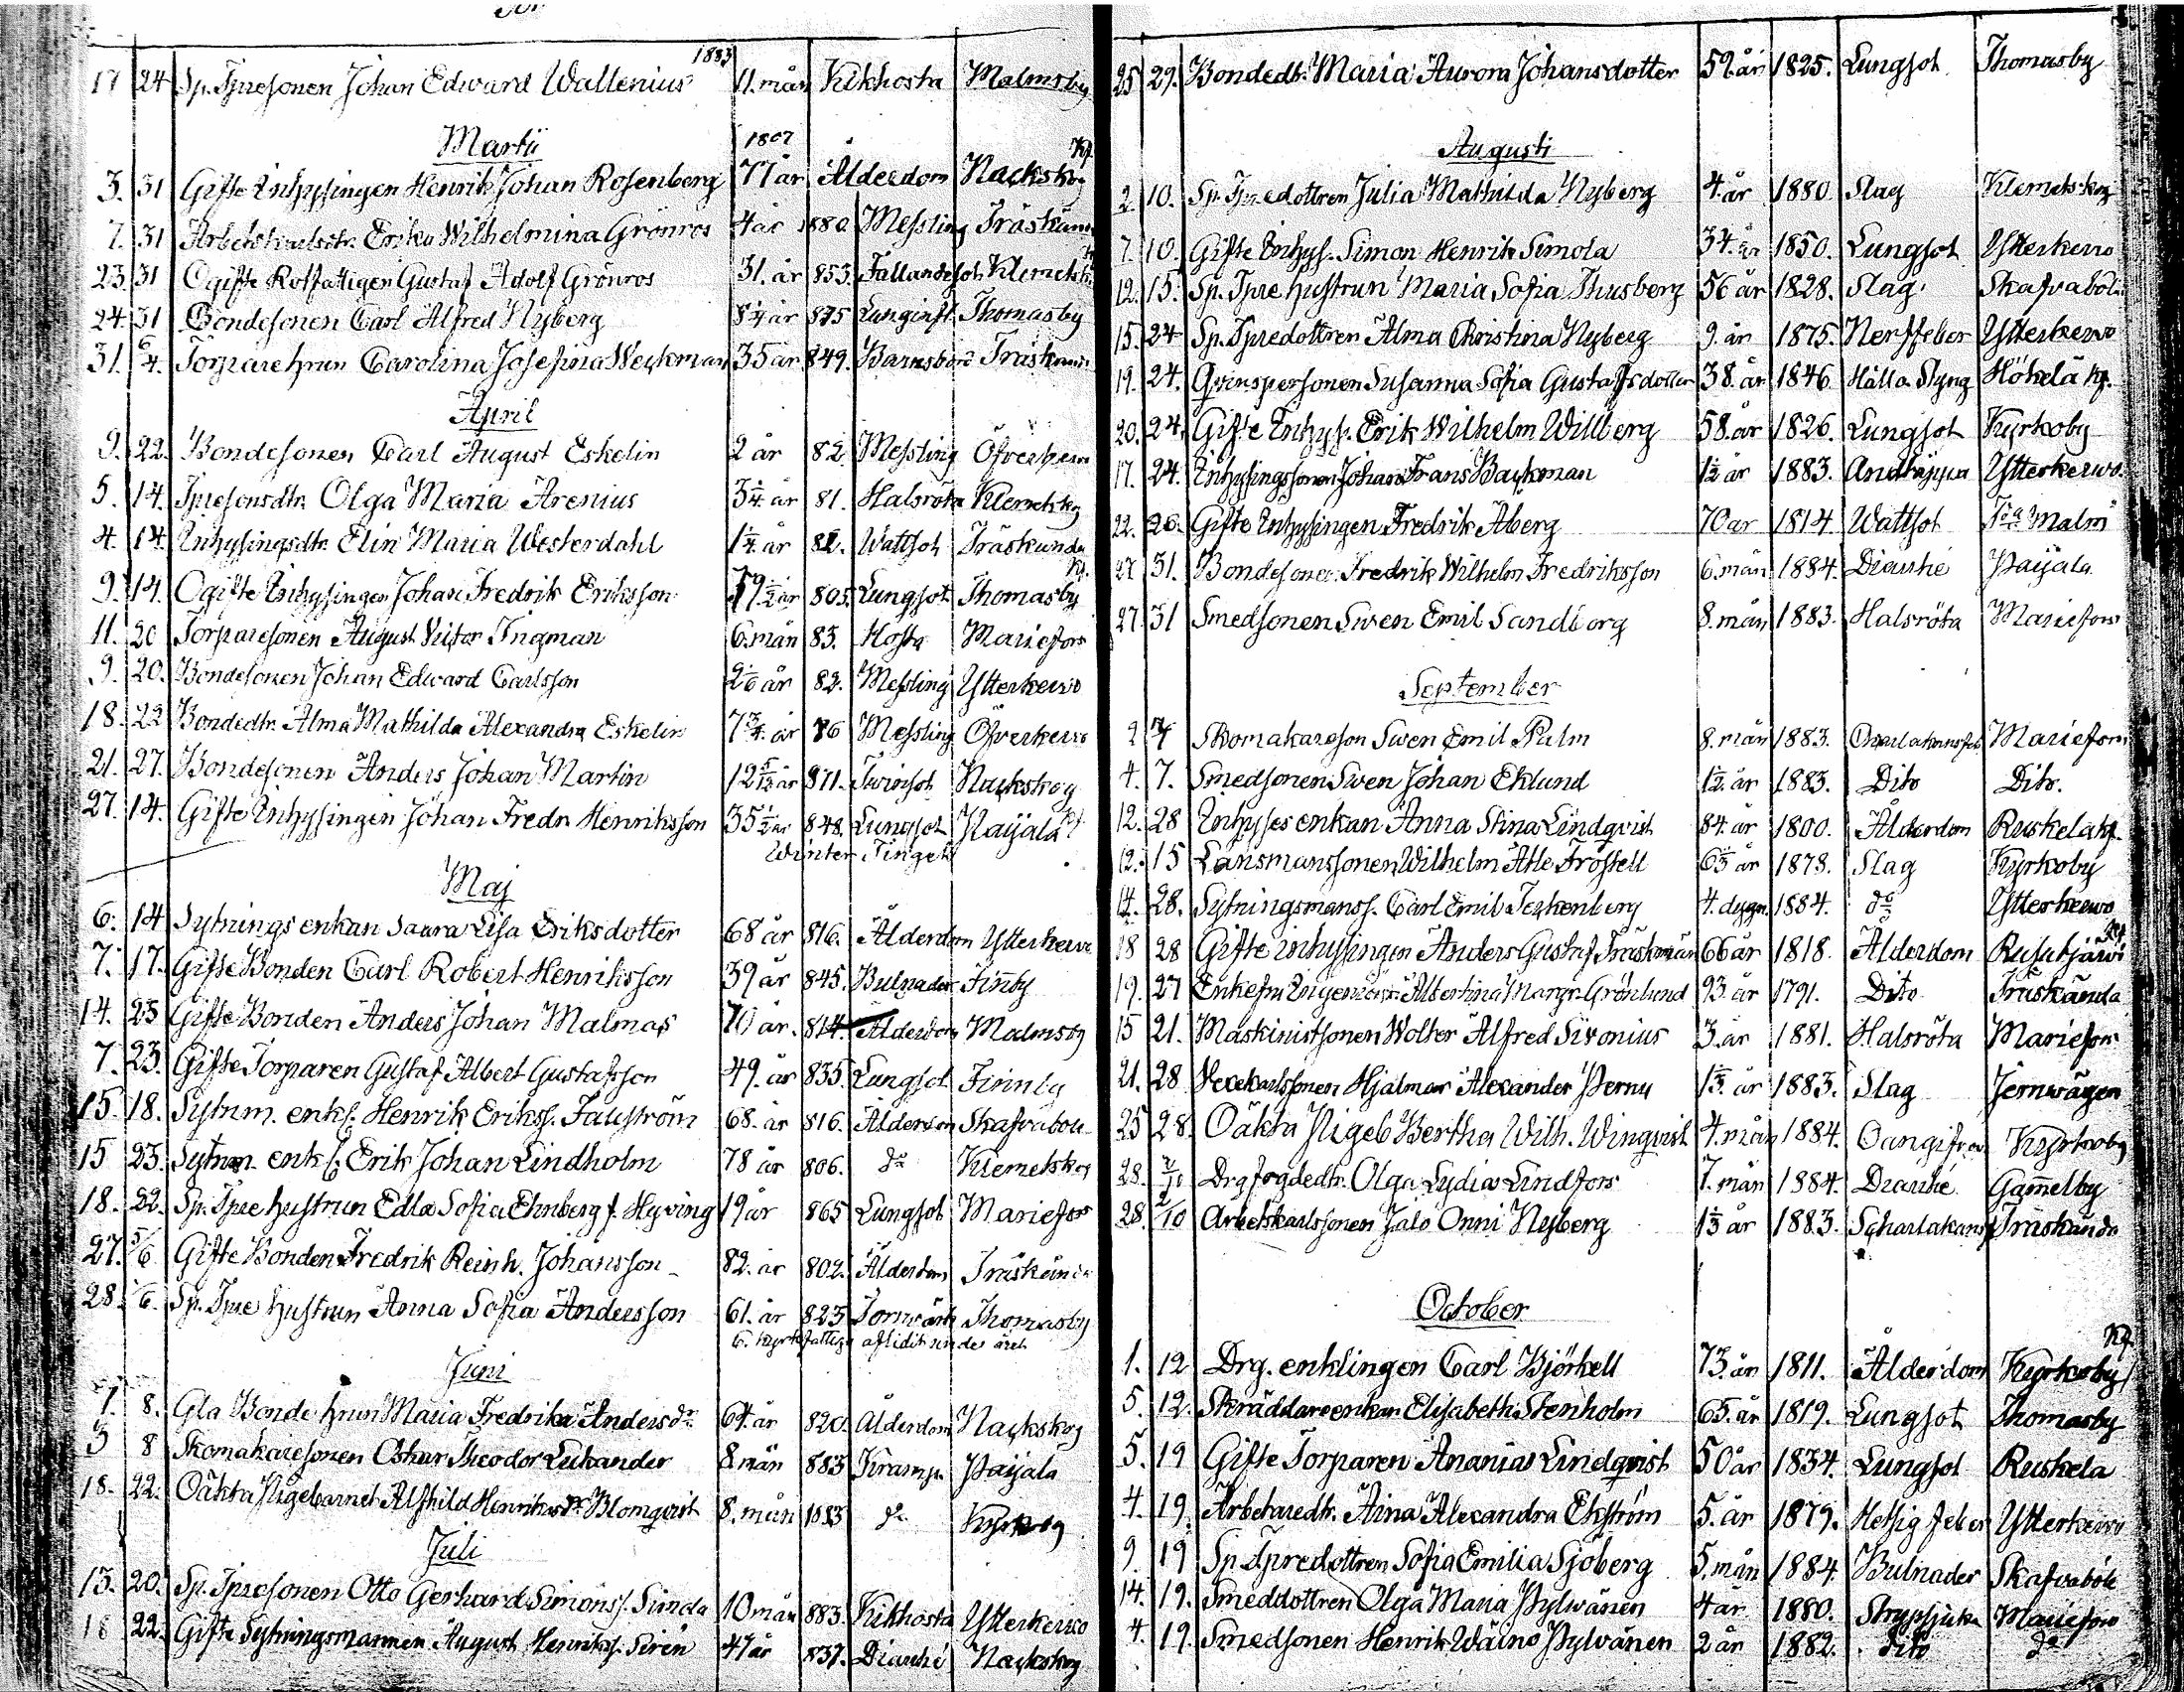 1883
17 24 Sp. Tpresonen Johan Edward Wallenius 11. mån Kikhosta Malmsby
Martii
1807 Kp.
3. 31 Gifte Inhysingen Henrik Johan Rosenberg 77 år Ålderdom Nackskog
7. 31 Arbetskarlsdtr. Erika Wilhelmina Grönros 4 år 1880. Messling Träskända
23. 31 Ogifte Rotfattigen Gustaf Adolf Grönros 31. år 853. Fallandesot Klemetsk.
24. 31 Bondesonen Carl Alfred Nyberg 8¼ år 875 Lunginfl. Thomasby
31. 6/4. Torpare hrun Carolina Josefina Weckman 35 år 849. Barnsbörd Träskända
April
9. 22. Bondesonen Carl August Eskelin 2 år 82. Messling Öfverkervo
5. 14. Tpresonsdtr. Olga Maria Arenius 3¼ år 81. Halsröta Klemetskog
4. 14. Inhysingsdtr. Elin Maria Westerdahl 1¼ år 82. Wattsot Träskända
Kp.
9. 14. Ogifte Inhysingen Johan Fredrik Eriksson 79½ år 805. Lungsot Thomasby
11. 20 Torparesonen August Victor Ingman 6. mån 83. Hosta Mariefors
9. 20. Bondesonen Johan Edward Carlsson 2 1/6 år 82. Messling Ytterkervo
18. 22 Bondedtr. Alma Mathilda Alexandra Eskelin 7¾ år 76 Messling Öfverkervo
21. 27. Bondesonen Anders Johan Martin 12 5/12 år 871. Twinsot Nackskog
27. 14. Gifte Inhysingen Johan Fredr. Henriksson 35½ år 848. Lungsot Paijala Kp
Winter Tinget
Maj
6. 14 Sytnings enkan Saara Lisa Eriksdotter 68 år 816. Ålderdom Ytterkervo
7. 17. Gifte Bonden Carl Robert Henriksson 39 år 845. Bulnader Finby
14. 23 Gifte Bonden Anders Johan Malmas 70 år. 814. Ålderdom Malmsby
7. 23. Gifte Torparen Gustaf Albert Gustafsson 49. år 835. Lungsot Finnby
15. 18. Sytnm. enkl. Henrik Erikss. Fauström 68. år 816. Ålderdom Skafvaböle
15 23. Sytnm. enkl. Erik Johan Lindholm 78 år 806. do Klemetskog
18. 22. Sp. Tpre hustrun Edla Sofia Ehnberg f. Hyving 19 år 865 Lungsot Mariefors
27. 5/6 Gifte Bonden Fredrik Reinh. Johansson 82. år 802. Ålderdom Träskända
28. /6. Sp. Tpre hustrun Anna Sofia Andersson 61. år 823 Thomasby
6. aflidit under året
Juni
1. 8. Gla Bonde hrun Maria Fredrika Andersdr. 64. år 820. Ålderdom Nackskog
5 8 Skomakaresonen Oskar Theodor Lekander 8 mån 883 Kramp. Paijala
18. 22. Oäkta Pigebarnet Alfhild Henriksdr. Blomqvist 8. mån 1883 do Kyrkoby
Juli
13. 20. Sp. Tpresonen Otto Gerhard Simonss. Simola 10 mån 883. Kikhosta Ytterkervo
18 22. Gifte Sytningsmannen August Henrikss. Sirén 47 år 837. Diarrhé Nackskog
25 29. Bondedtr. Maria Aurora Johansdotter 59. år 1825. Lungsot Thomasby
Augusti
2. 10. Sp. Tpredottren Julia Mathilda Nyberg 4. år 1880. Slag Klemetskog
7. 10. Gifte Inhys. Simon Henrik Simola 34. år 1850. Lungsot Ytterkervo
12. 15. Sp. Tpre hustrun Maria Sofia Thusberg 56 år 1828. Slag. Skafvaböle
15. 24 Sp. Tpredottren Alma Christina Nyberg 9. år 1875. Nerffeber Ytterkervo
19. 24. Qvinspersonen Susanna Sofia Gustafsdotter 38. år 1846. Håll o. Styng Hökelä Kp.
20. 24. Gifte Inhys. Erik Wilhelm Willberg 58. år 1826. Lungsot Kyrkoby
17. 24. Inhysingssonen Johan Frans Backman 1½ år 1883. Andtäppa Ytterkervo.
22. 26. Gifte Inhysingen Fredrik Åberg 70 år 1814. Wattsot Malm
27 31. Bondesonen Fredrik Wilhelm Fredriksson 6. mån 1884. Diarrhé Paijala
27. 31 Smedsonen Swen Emil Sandborg 8. mån 1883. Halsröta Mariefors
September
2 7 Skomakareson Swen Emil Palm 8. mån 1883. Mariefors
4. 7. Smedsonen Swen Johan Eklund 1½ år 1883. Dito Dito.
12. 28 Inhyses enkan Anna Stina Lindqvist 84. år 1800. Ålderdom Ruskela kp.
12. 15 Länsmanssonen Wilhelm Atle Frösfell 6⅓ år 1878. Slag Kyrkoby
14. 28. Sytningsmanss. Carl Emil Teckenberg 4. dygn. 1884. do Ytterkervo
Kp.
18 28 Gifte inhysingen Anders Gustaf Träskman 66 år 1818. Ålderdom Rusutjärvi
19. 27 Enkefru Albertina Margr. Grönlund 93. år 1791. Dito Träskända
15 21. Maskinistsonen Wolter Alfred Sironius 3. år 1881. Halsröta Mariefors
21. 28 Vexekarlssonen Hjalmar Alexander Pernu 1⅓ år 1883. Slag Jernwägen
25 28. Oäkta Pigeb. Bertha Wilh. Winqvist 4. mån 1884. Oangifven Kyrkoby
28. 2/10 Drgfogdedtr. Olga Lydia Lindfors 7. mån 1884. Diarrhé Gammelby
28. 2/10 Arbetskarlssonen Jalo Onni Nyberg 1⅓ år 1883. Scharlakansf. Träskända
October
Kp.
1. 12 Drg. enklingen Carl Björkell 73. år 1811. Ålderdom Kyrkoby
5. 12. Skräddareenkan Elisabeth Stenholm 65. år 1819. Lungsot Thomasby
5. 19 Gifte Torparen Ananias Lindqvist 50 år 1834. Lungsot Ruskela
4. 19. Arbetaredtr. Aina Alexandra Ekström 5. år 1879. Hetsig feber Ytterkervo
9. 19 Sp. Tpredottren Sofia Emilia Sjöberg 5. mån 1884. Bulnader Skafvaböle
14. 19. Smeddottren Olga Maria Pylvänen 4 år 1880. Strypsjuka Mariefors
4. 19. Smedsonen Henrik Wäinö Pylvänen 2 år 1882. dito do